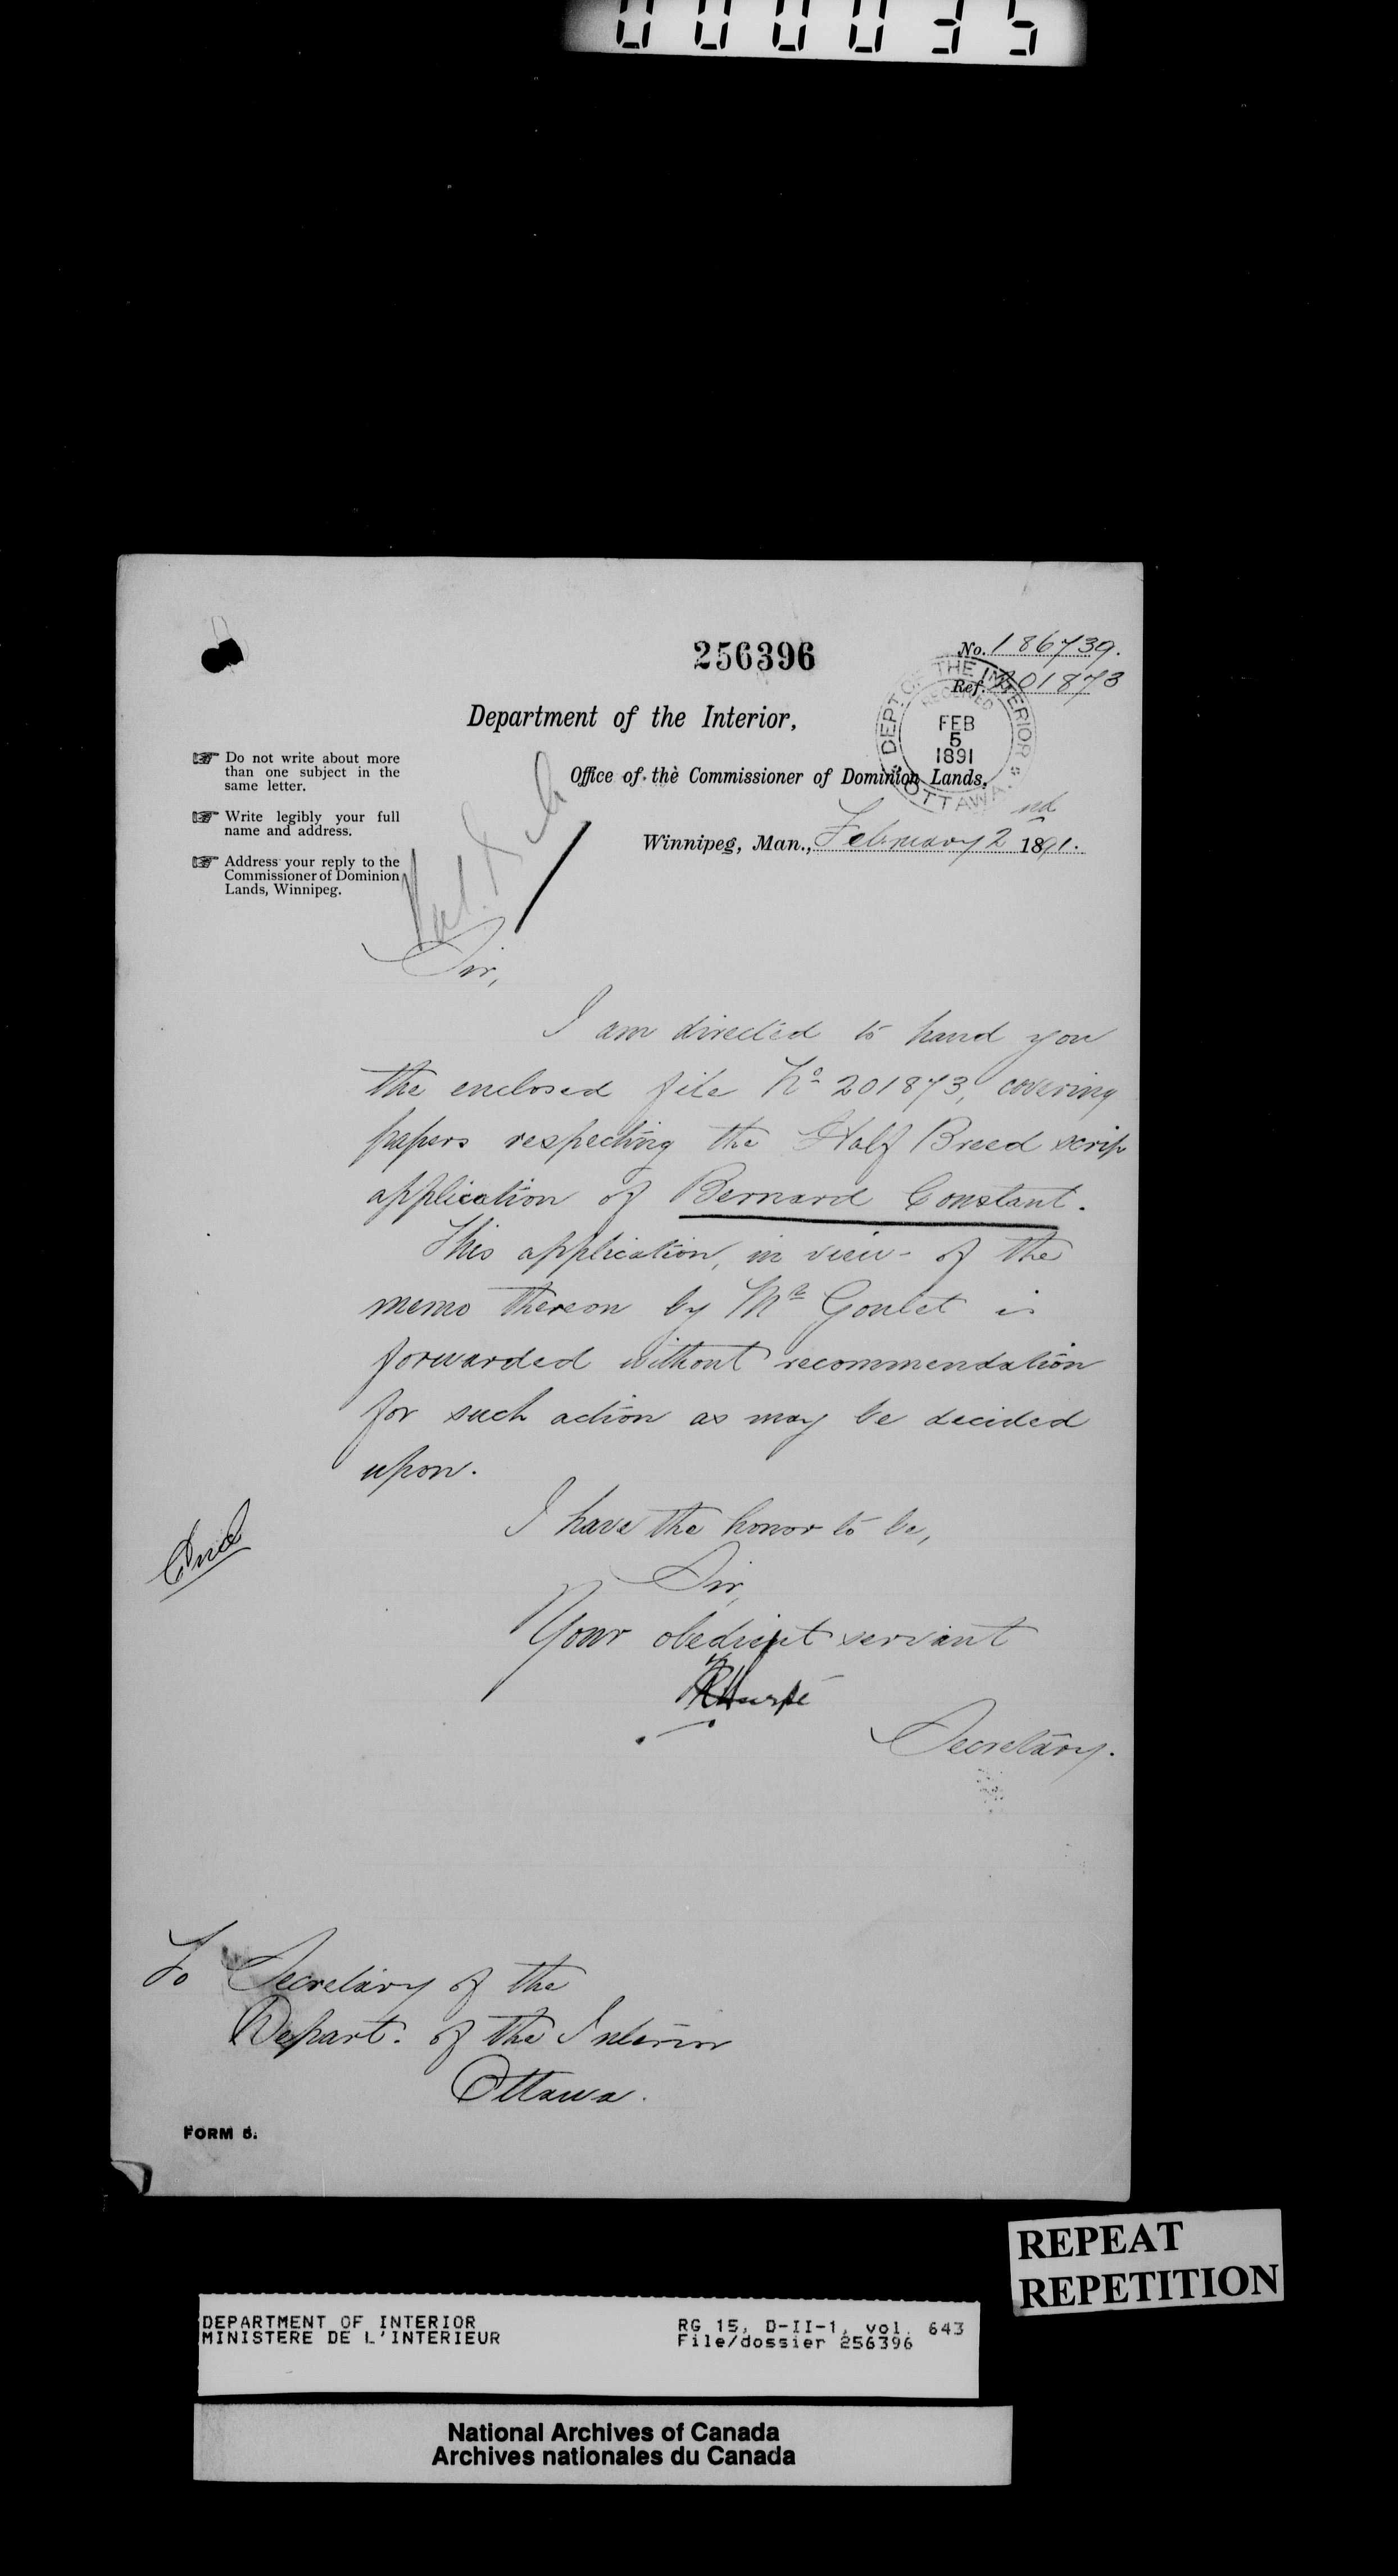 000035
256396
No. 186739.
Ref. 201873
DEPT. OF THE INTERIOR
RECEIVED
FEB
5
1891
OTTAWA.
Department of the Interior,
Office of the Commissioner of Dominion Lands,
Winnipeg, Man., February 2nd 1891.
Do not write about more
than one subject in the
same letter.
Write legibly your full
name and address.
Address your reply to the
Commissioner of Dominion
Lands, Winnipeg.
Sir,
I am directed to hand you
the enclosed file No. 201873, covering
papers respecting the Half Breed scrip
application of Bernard Constant.
This application, in view of the
memo thereon by Mr Goulet is
forwarded without recommendation
for such action as may be decided
upon.
I have the honor to be,
Sir,
Your obedient servant
Secretary.
To Secretary of the
Depart. of the Interior
Ottawa.
FORM 5.
REPEAT
REPETITION
DEPARTMENT OF INTERIOR
MINISTERE DE L'INTERIEUR
RG 15, D-II-1, vol. 643
File/dossier 256396
National Archives of Canada
Archives nationales du Canada